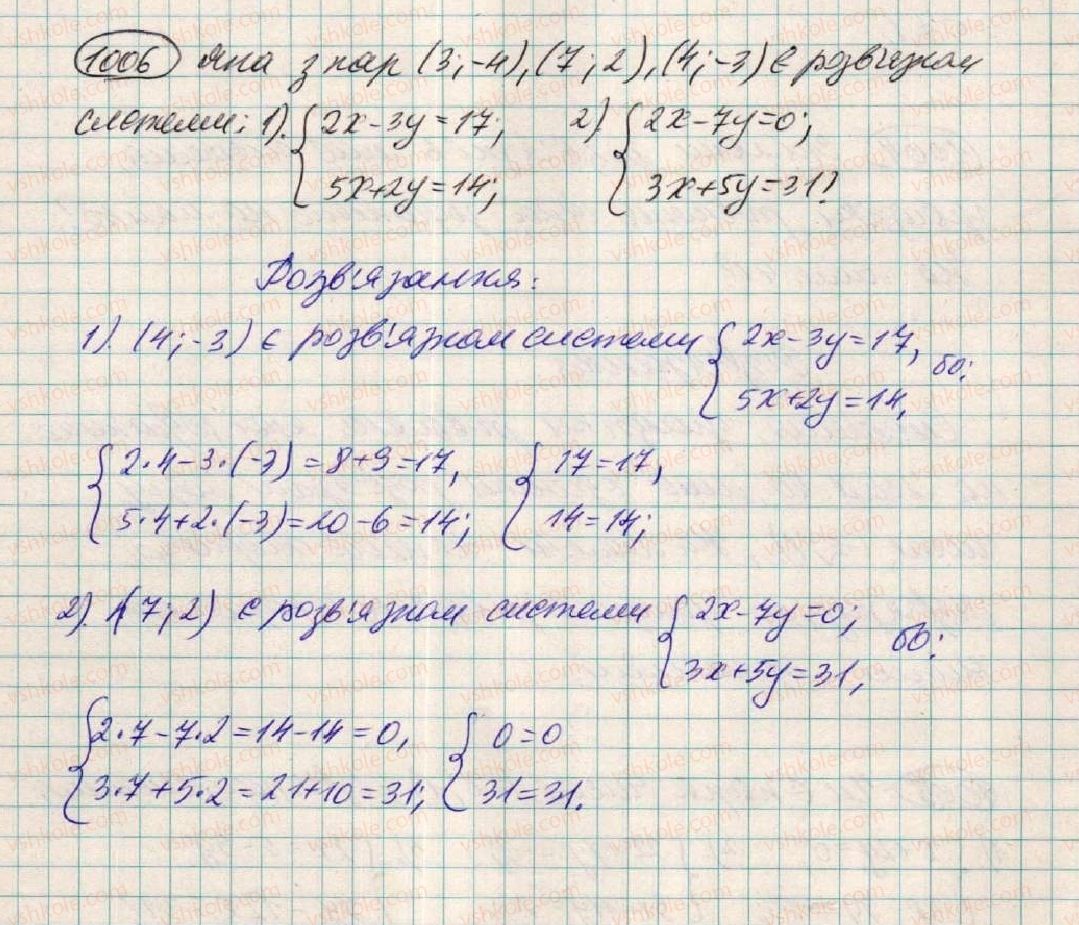 1006 Яка з пар (3; -4), (7; 2), (4; -3) є розв'язком
системи: 1). { 2x - 3y = 17; 2). { 2x - 7y = 0;
5x + 2y = 14; 3x + 5y = 31?
Розв'язання:
1). (4; -3) є розв'язком системи { 2x - 3y = 17, бо:
5x + 2y = 14,
{ 2·4 - 3·(-3) = 8 + 9 = 17, { 17 = 17,
5·4 + 2·(-3) = 20 - 6 = 14; 14 = 14;
2). (7; 2) є розв'язком системи { 2x - 7y = 0; бо:
3x + 5y = 31,
{ 2·7 - 7·2 = 14 - 14 = 0, { 0 = 0
3·7 + 5·2 = 21 + 10 = 31; 31 = 31.
vshkole.com